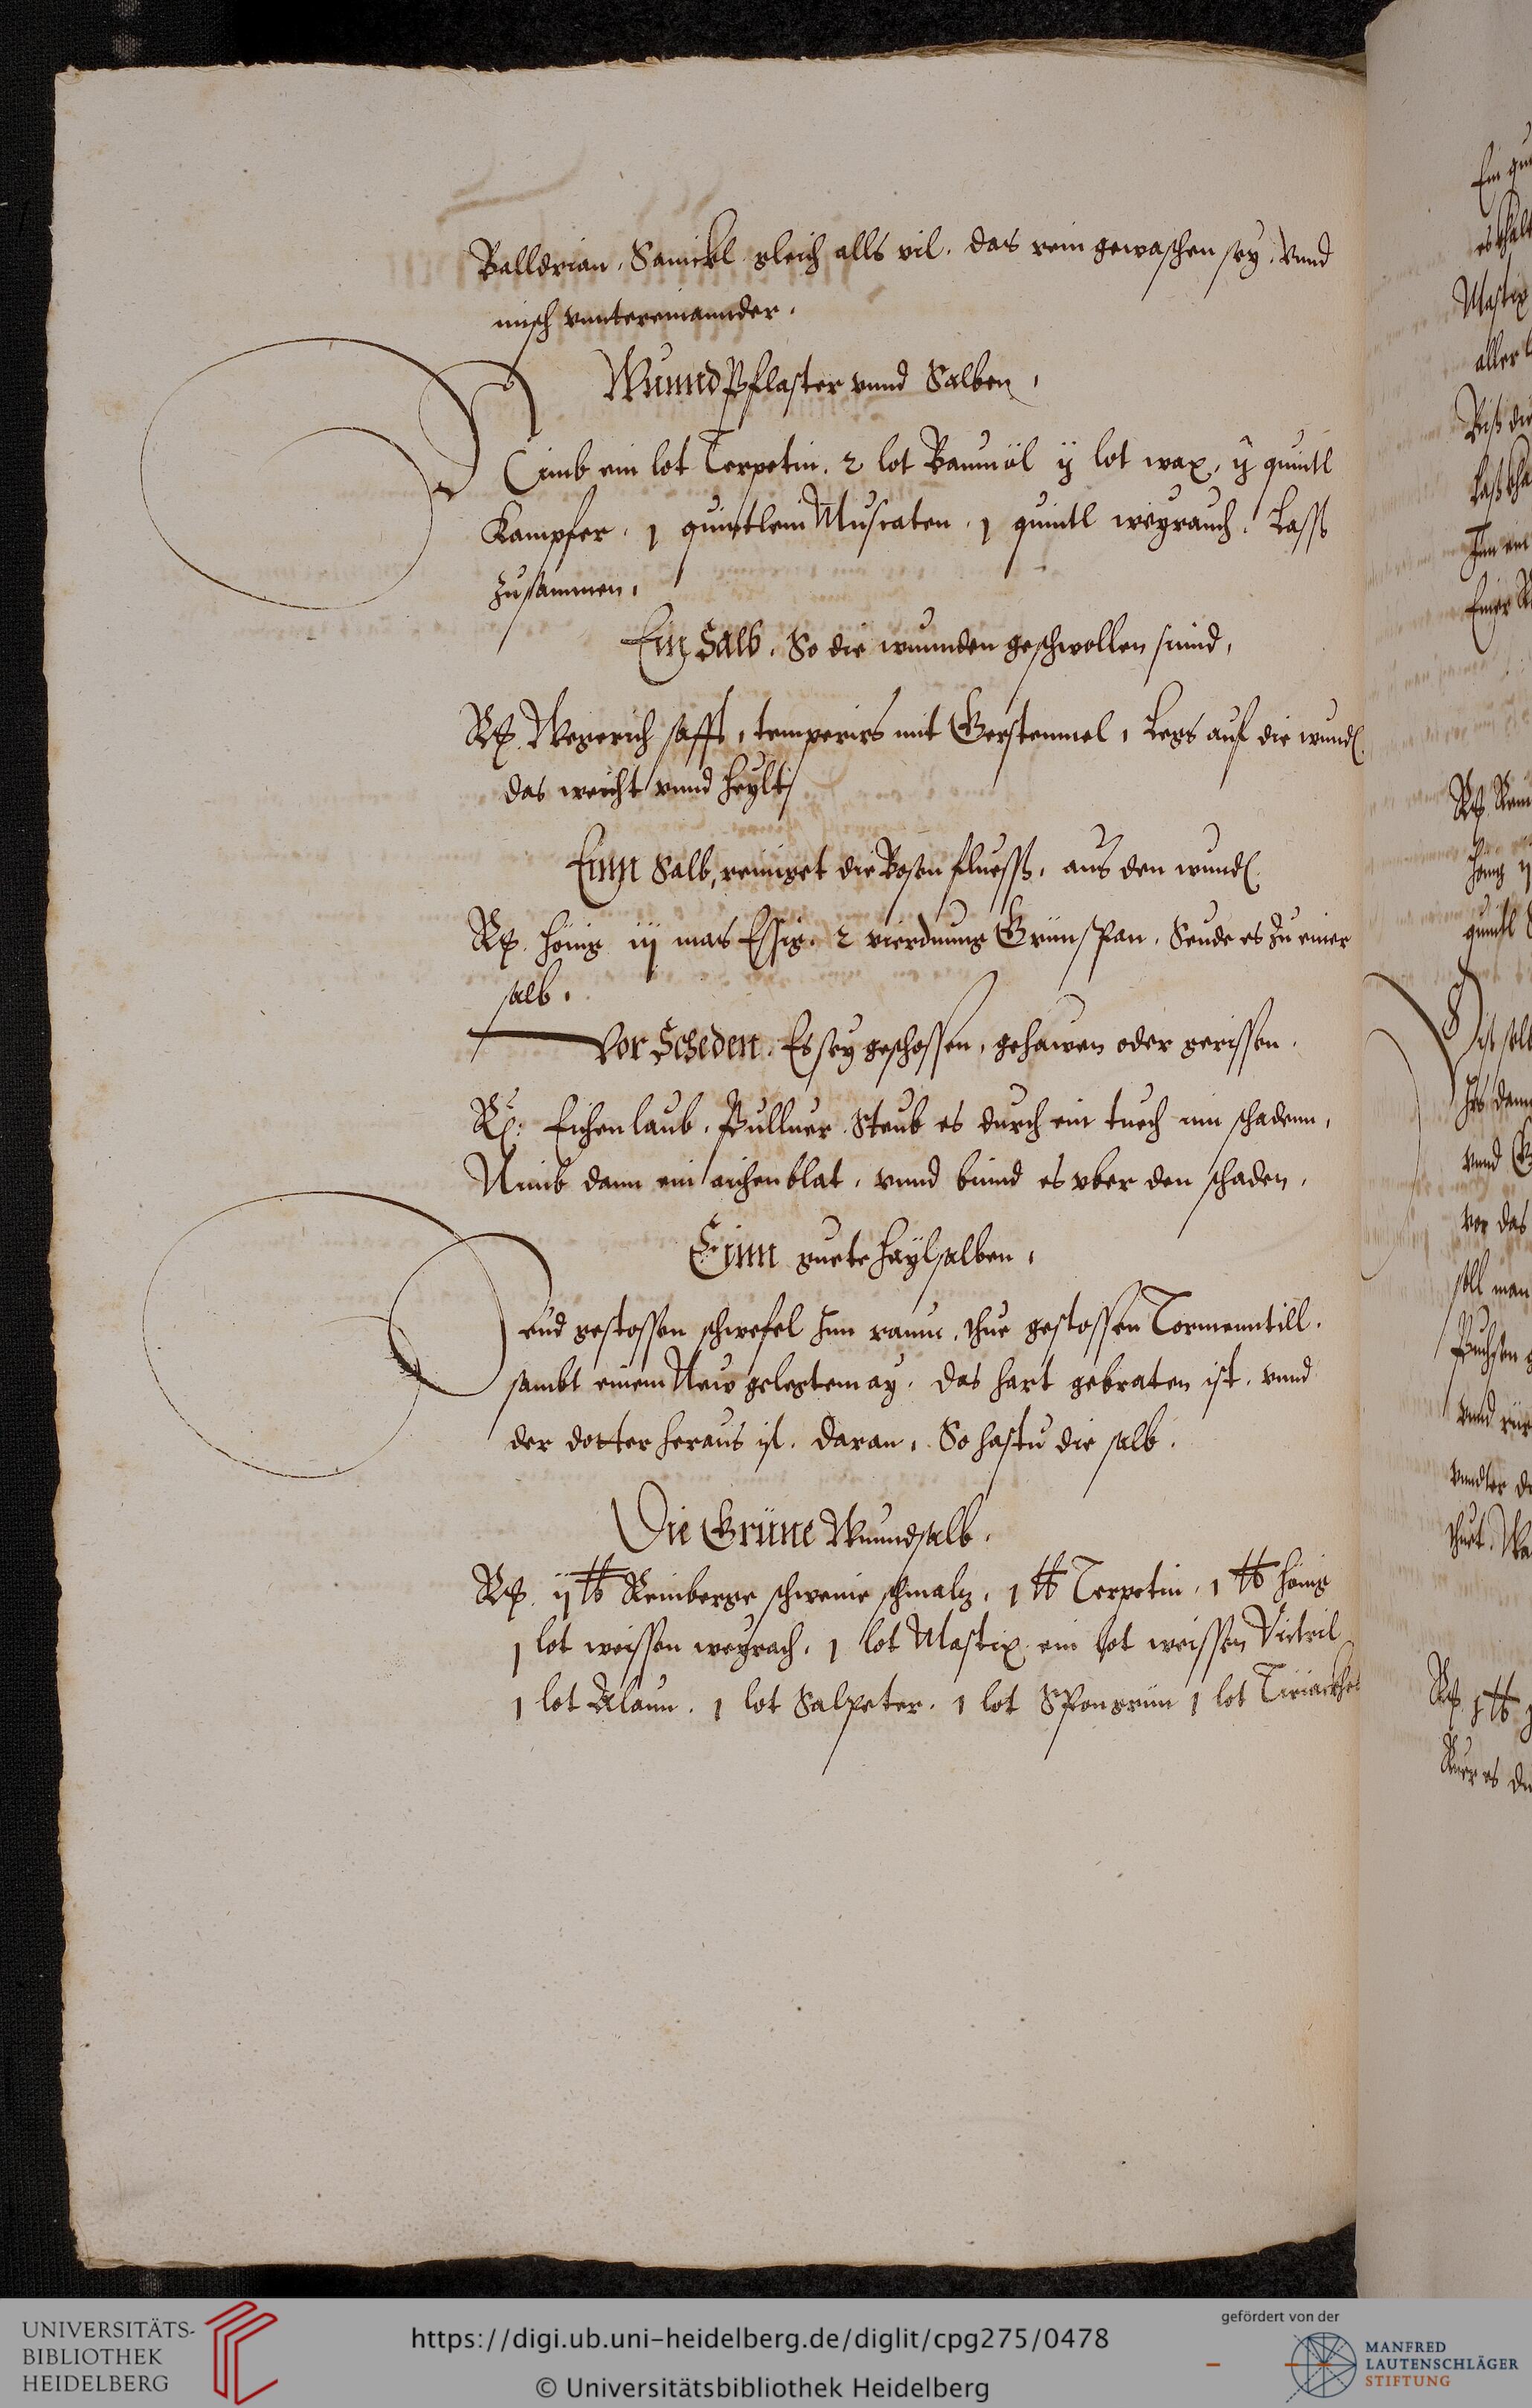 Balldrian. Sanickl gleich alls vil. das rein gewaschen sey. vnnd
misch vnntereinannder.
Wunnd Pflaster vnnd Salben.
Nimb ein lot Terpetin. 2 lot Baumöl ij lot wax, ij quintl
Kampfer. 1 quintlein Muscaten. 1 quintl weyrauch. Lass
zusammen.
Ein Salb. So die wunnden geschwollen sinnd.
Rp. Wegerich safft, temperirs mit Gerstenmel, Legs auf die wund
das weicht vnnd heylt
Einn Salb, reiniget die Bosen fluessß, aus den wund
Rp. Hönig iij mas Essig. 2 vierdung Grünspan. Seude es zu einer
salb.
Vor Scheden. Es sey geschossen, gehawen oder gerissen.
Rp: Eichenlaub. Pulluer Steub es durch ein tuech inn schadenn,
Nimb dann ein aichenblat, vnnd binnd es vber den schaden.
Einn guete Haylsalben.
Seud gestossen schwefel Inn raum, thue gestossen Tormenntill.
sambt einem New gelegtem ay. das hart gebraten ist. vnnd
der dotter heraus ist. daran. So hastu die salb.
Die Grüne Wunndsalb.
Rp. ij ℔ Reinberge schweine schmalz, 1 ℔ Terpetin, 1 ℔ Hönig
1 lot weissen weyrach, 1 lot Mastix ein lot weissen Victril
1 lot Alaun. 1 lot Salpeter. 1 lot Spongrün 1 lot
UNIVERSITÄTS-
BIBLIOTHEK
HEIDELBERG
https://digi.ub.uni-heidelberg.de/diglit/cpg275/0478
© Universitätsbibliothek Heidelberg
gefördert von der
MANFRED
LAUTENSCHLÄGER
STIFTUNG